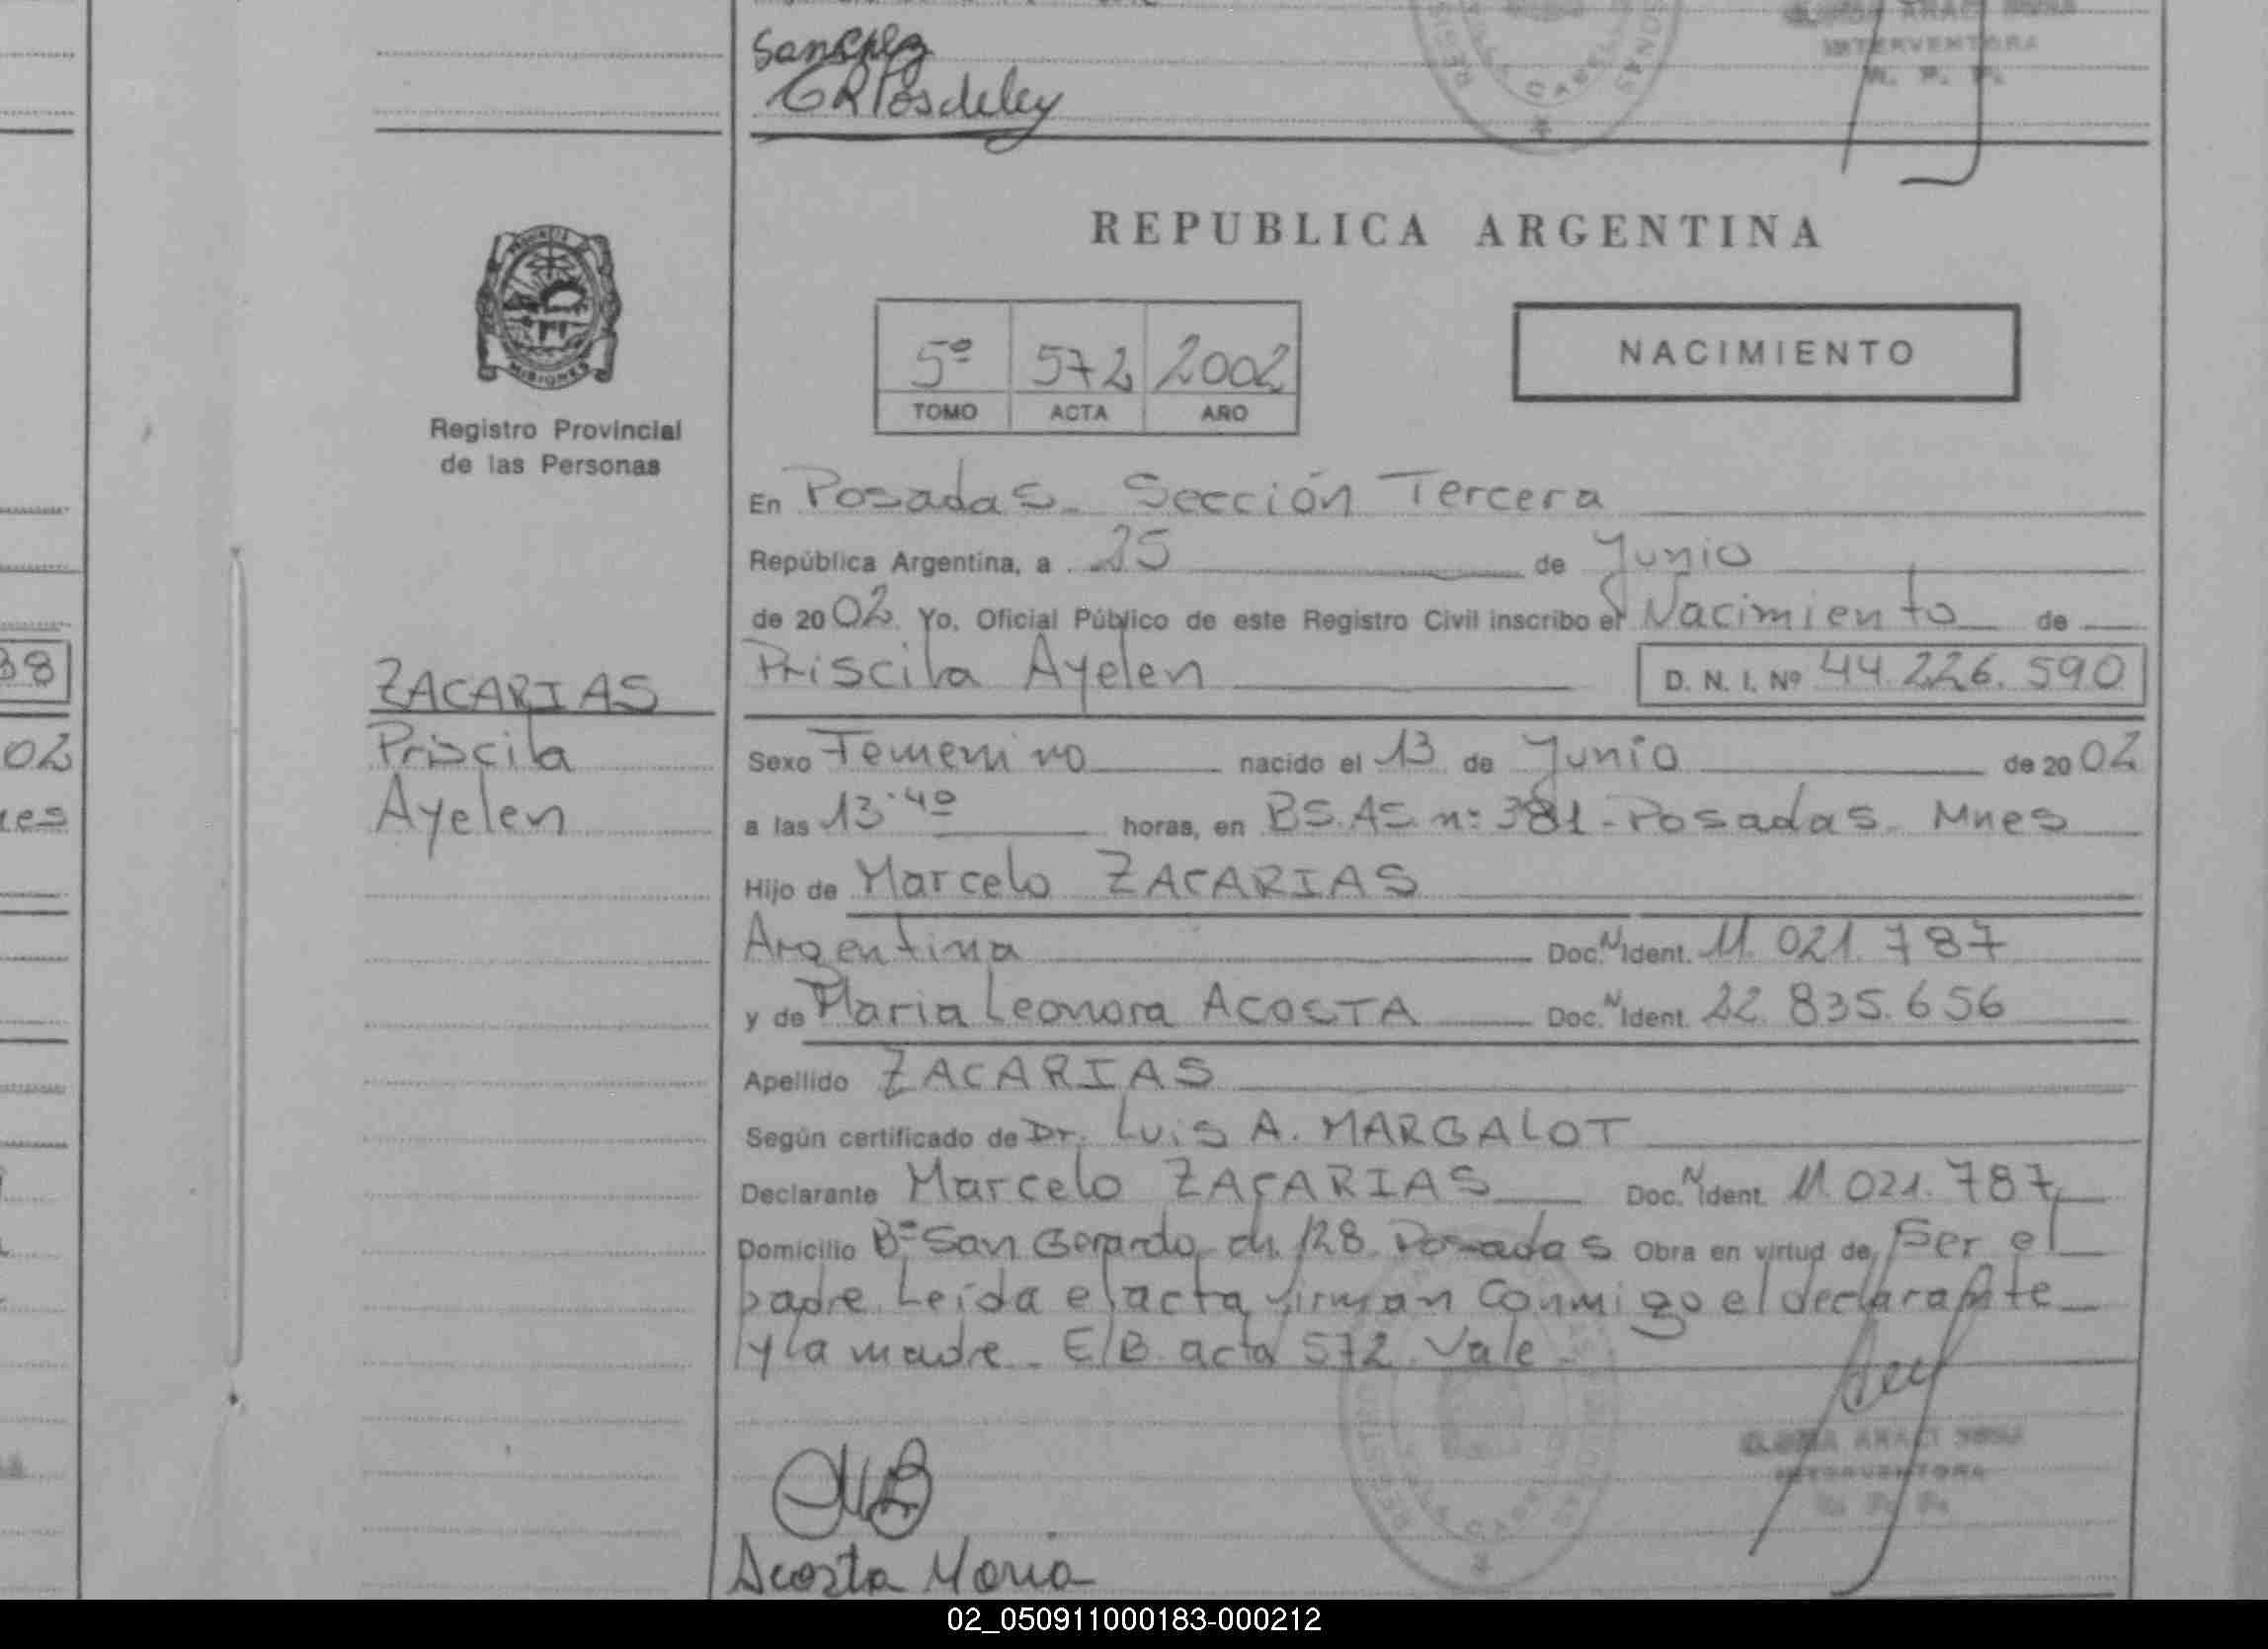 Sanchez
REPUBLICA ARGENTINA
PROVINCIA
MISIONES
5º 572 2002
TOMO ACTA AÑO
NACIMIENTO
Registro Provincial
de las Personas
En Posadas - Sección Tercera
República Argentina, a 25 de Junio
de 2002. Yo, Oficial Público de este Registro Civil inscribo el Nacimiento de
38
ZACARIAS
Priscila Ayelen D. N. I. Nº 44.226.590
02
Priscila
Ayelen
Sexo Femenino nacido el 13 de Junio de 2002
a las 13.40 horas, en BS.AS. nº 381 - Posadas - Mnes
Hijo de Marcelo ZACARIAS
Argentina Doc. N. Ident. 11.021.787
y de Maria Leonora ACOSTA Doc. N. Ident. 22.835.656
Apellido ZACARIAS
Según certificado de Dr. Luis A. MARGALOT
Declarante Marcelo ZACARIAS Doc. N. Ident. 11.021.787
Domicilio Bº San Gerardo ch. 128 Posadas Obra en virtud de Ser el
padre. Leída el acta firman Conmigo el declarante
y la madre. E/B. acta 572. Vale
INTERVENTORA
Acosta Maria
02_050911000183-000212